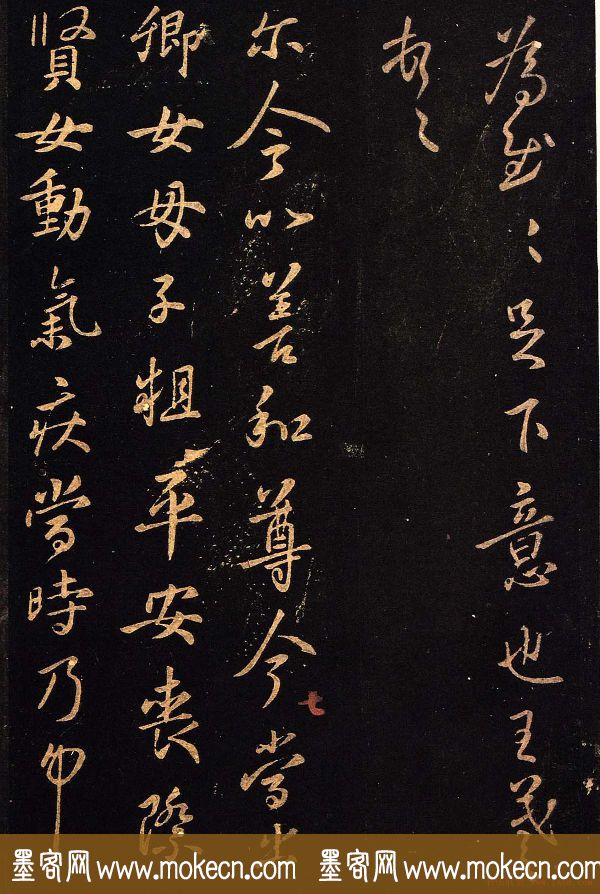 為慰〻足下意也王羲
頓〻
尔今以善和尊今當出
卿女母子粗平安喪際
賢女動氣疾當時乃命
七
墨客网 www.mokecn.com 墨客网 www.mokecn.com